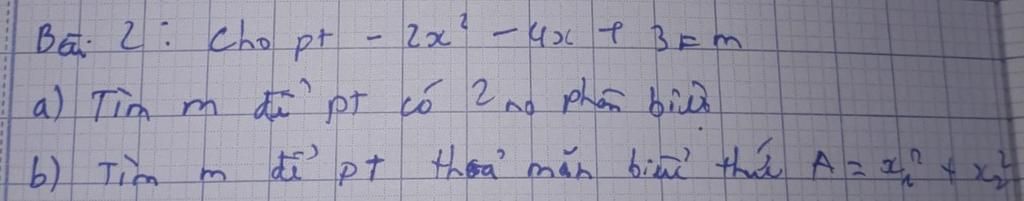 Bài 2: Cho pt - 2x² - 4x + 3 = m
a) Tìm m để pt có 2 no phân biệt
b) Tìm m để pt thoả mãn biểu thức A = x₁² + x₂²